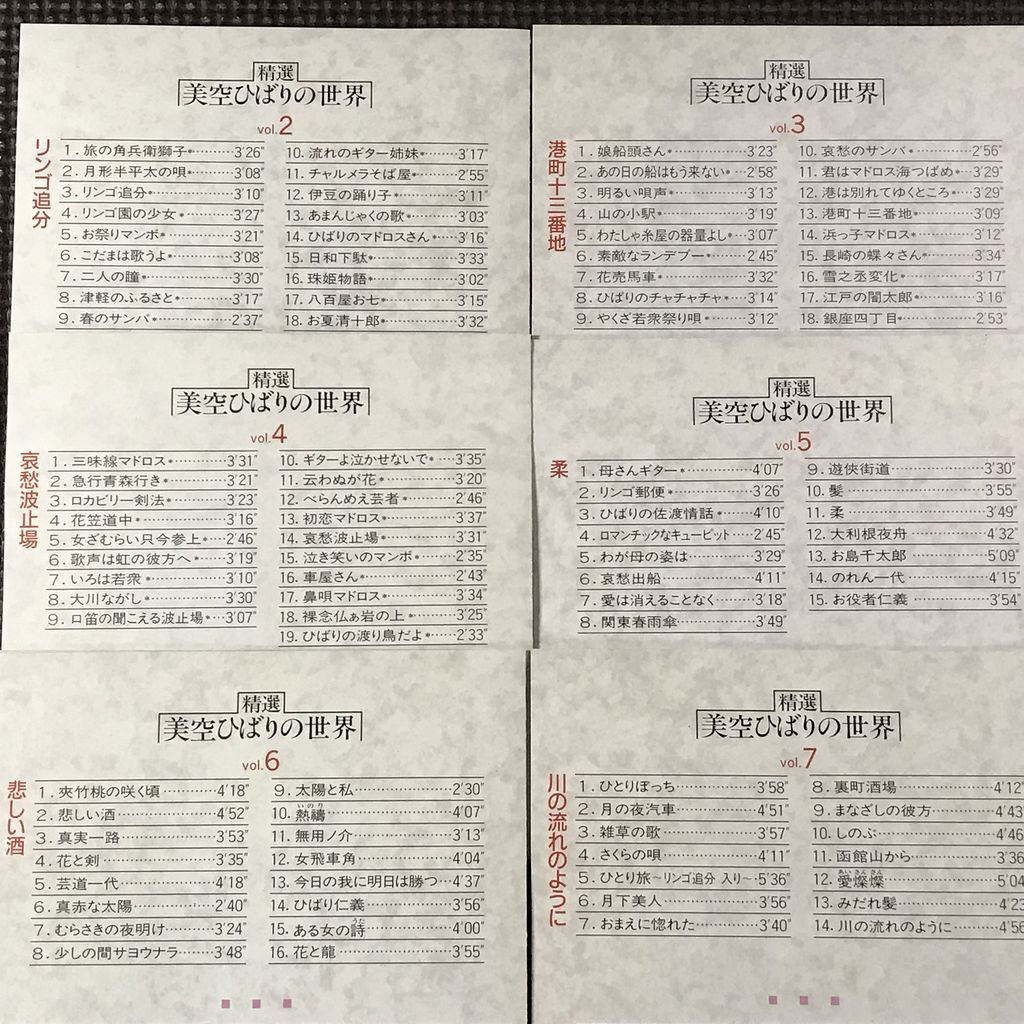 精選
美空ひばりの世界
vol.2
リンゴ追分
1. 旅の角兵衛獅子*………3'26"
2. 月形半平太の唄*………3'08"
3. リンゴ追分*………3'10"
4. リンゴ園の少女*………3'27"
5. お祭りマンボ*………3'21"
6. こだまは歌うよ*………3'08"
7. 二人の瞳*………3'30"
8. 津軽のふるさと*………3'17"
9. 春のサンバ*………2'37"
10. 流れのギター姉妹*………3'17"
11. チャルメラそば屋*………2'55"
12. 伊豆の踊り子*………3'11"
13. あまんじゃくの歌*………3'03"
14. ひばりのマドロスさん*……3'16"
15. 日和下駄*………3'33"
16. 珠姫物語*………3'02"
17. 八百屋お七*………3'15"
18. お夏清十郎*………3'32"
精選
美空ひばりの世界
vol.3
港町十三番地
1. 娘船頭さん*………3'23"
2. あの日の船はもう来ない*……2'58"
3. 明るい唄声*………3'13"
4. 山の小駅*………3'19"
5. わたしゃ糸屋の器量よし*……3'07"
6. 素敵なランデブー*………2'45"
7. 花売馬車*………3'32"
8. ひばりのチャチャチャ*……3'14"
9. やくざ若衆祭り唄*………3'12"
10. 哀愁のサンバ*………2'56"
11. 君はマドロス海つばめ*……3'29"
12. 港は別れてゆくところ*……3'29"
13. 港町十三番地*………3'09"
14. 浜っ子マドロス*………3'12"
15. 長崎の蝶々さん*………3'34"
16. 雪之丞変化*………3'17"
17. 江戸の闇太郎*………3'16"
18. 銀座四丁目*………2'53"
精選
美空ひばりの世界
vol.4
哀愁波止場
1. 三味線マドロス*………3'31"
2. 急行青森行き*………3'21"
3. ロカビリー剣法*………3'23"
4. 花笠道中*………3'16"
5. 女ざむらい只今参上*……2'46"
6. 歌声は虹の彼方へ*………3'19"
7. いろは若衆*………3'10"
8. 大川ながし*………3'30"
9. 口笛の聞こえる波止場*……3'07"
10. ギターよ泣かせないで*……3'35"
11. 云わぬが花*………3'20"
12. べらんめえ芸者*………2'46"
13. 初恋マドロス*………3'37"
14. 哀愁波止場*………3'31"
15. 泣き笑いのマンボ*………2'35"
16. 車屋さん*………2'43"
17. 鼻唄マドロス*………3'34"
18. 裸念仏ぁ岩の上*………3'25"
19. ひばりの渡り鳥だよ*……2'33"
精選
美空ひばりの世界
vol.5
柔
1. 母さんギター*………4'07"
2. リンゴ郵便*………3'26"
3. ひばりの佐渡情話*………4'10"
4. ロマンチックなキューピット……2'45"
5. わが母の姿は………3'29"
6. 哀愁出船………4'11"
7. 愛は消えることなく………3'18"
8. 関東春雨傘………3'49"
9. 遊侠街道………3'30"
10. 髪………3'55"
11. 柔………3'49"
12. 大利根夜舟………4'32"
13. お島千太郎………5'09"
14. のれん一代………4'15"
15. お役者仁義………3'54"
精選
美空ひばりの世界
vol.6
悲しい酒
1. 夾竹桃の咲く頃………4'18"
2. 悲しい酒………4'52"
3. 真実一路………3'53"
4. 花と剣………3'35"
5. 芸道一代………4'18"
6. 真赤な太陽………2'40"
7. むらさきの夜明け………3'24"
8. 少しの間サヨウナラ………3'48"
9. 太陽と私………2'30"
10. 熱禱………4'07"
11. 無用ノ介………3'13"
12. 女飛車角………4'04"
13. 今日の我に明日は勝つ…4'37"
14. ひばり仁義………3'56"
15. ある女の詩………4'00"
16. 花と龍………3'55"
精選
美空ひばりの世界
vol.7
川の流れのように
1. ひとりぼっち………3'58"
2. 月の夜汽車………4'51"
3. 雑草の歌………3'57"
4. さくらの唄………4'11"
5. ひとり旅〜リンゴ追分 入り〜・5'36"
6. 月下美人………3'56"
7. おまえに惚れた………3'40"
8. 裏町酒場………4'12"
9. まなざしの彼方………4'43
10. しのぶ………4'46
11. 函館山から………3'36
12. 愛燦燦………5'04
13. みだれ髪………4'23
14. 川の流れのように………4'56